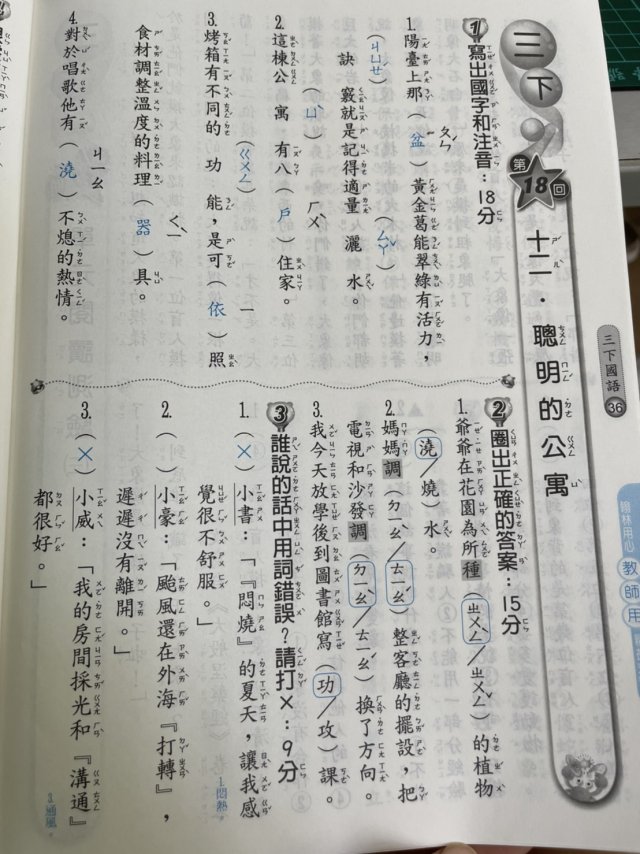 三下
第18回
十二．聰明的公寓
三下國語 36
翰林用心
教師用
1 寫出國字和注音：18分
1. 陽臺上那（盆）黃金葛能翠綠有活力，
訣竅就是記得適量灑水。
2. 這棟公寓有八（戶）住家。
3. 烤箱有不同的功能，是可（依）照
食材調整溫度的料理（器）具。
4. 對於唱歌他有（澆）不熄的熱情。
2 圈出正確的答案：15分
1. 爺爺在花園為所種（ㄓㄨㄥˇ／ㄓㄨㄥˋ）的植物
（澆／燒）水。
2. 媽媽調（ㄉㄧㄠˋ／ㄊㄧㄠˊ）整客廳的擺設，把
電視和沙發調（ㄉㄧㄠˋ／ㄊㄧㄠˊ）換了方向。
3. 我今天放學後到圖書館寫（功／攻）課。
3 誰說的話中用詞錯誤？請打×：9分
1.（×）小書：「『悶燒』的夏天，讓我感
覺很不舒服。」
1.悶熱。
2.（ ）小豪：「颱風還在外海『打轉』，
遲遲沒有離開。」
3.（×）小威：「我的房間採光和『溝通』
都很好。」
3.通風。